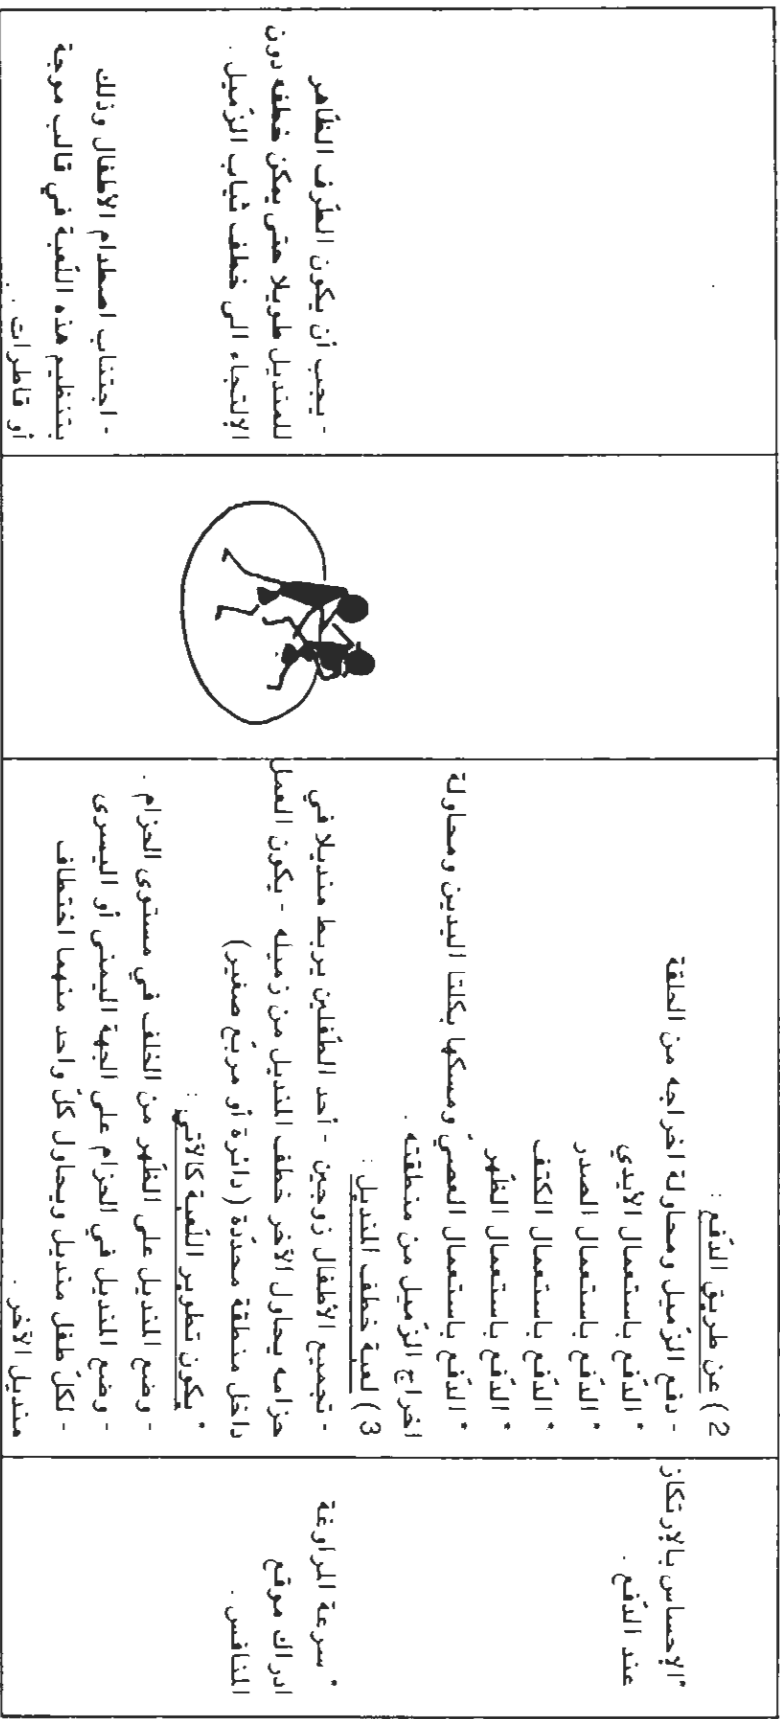 *الإحساس بالإرتكاز
عند الدّفع .
* سرعة المراوغة
ادراك موقع
المنافس .
2) عن طريق الدّفع :
- دفع الزّميل ومحاولة اخراجه من الحلقة
*الدّفع باستعمال الأيدي
*الدّفع باستعمال الصدر
* الدّفع باستعمال الكتف
* الدّفع باستعمال الظّهر
* الدّفع باستعمال العصيّ ومسكها بكلتا اليدين ومحاولة
اخراج الزّميل من منطقته .
3) لعبة خطف المنديل :
- تجميع الأطفال زوجين - أحد الطّفلين يربط منديلا في
حزامه يحاول الآخر خطف المنديل من زميله - يكون العمل
داخل منطقة محدّدة (دائرة أو مربّع صغير)
* يكون تطوير اللّعبة كالآتي :
- وضع المنديل على الظّهر من الخلف في مستوى الحزام .
- وضع المنديل في الحزام على الجهة اليمنى أو اليسرى
- لكلّ طفل منديل ويحاول كلّ واحد منهما اختطاف
منديل الآخر .
- يجب أن يكون الطّرف الظّاهر
للمنديل طويلا حتى يمكن خطفه دون
الإلتجاء الى خطف ثياب الزّميل .
- اجتناب اصطدام الأطفال وذلك
بتنظيم هذه اللّعبة في قالب موجة
أو قاطرات .